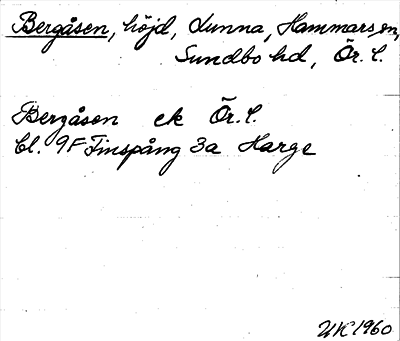 Bergåsen, höjd, Lunna, Hammars sn,
Sundbo hd, Ör. l.
Bergåsen ek Ör. l.
bl. 9F Finspång 3a Harge
UK 1960